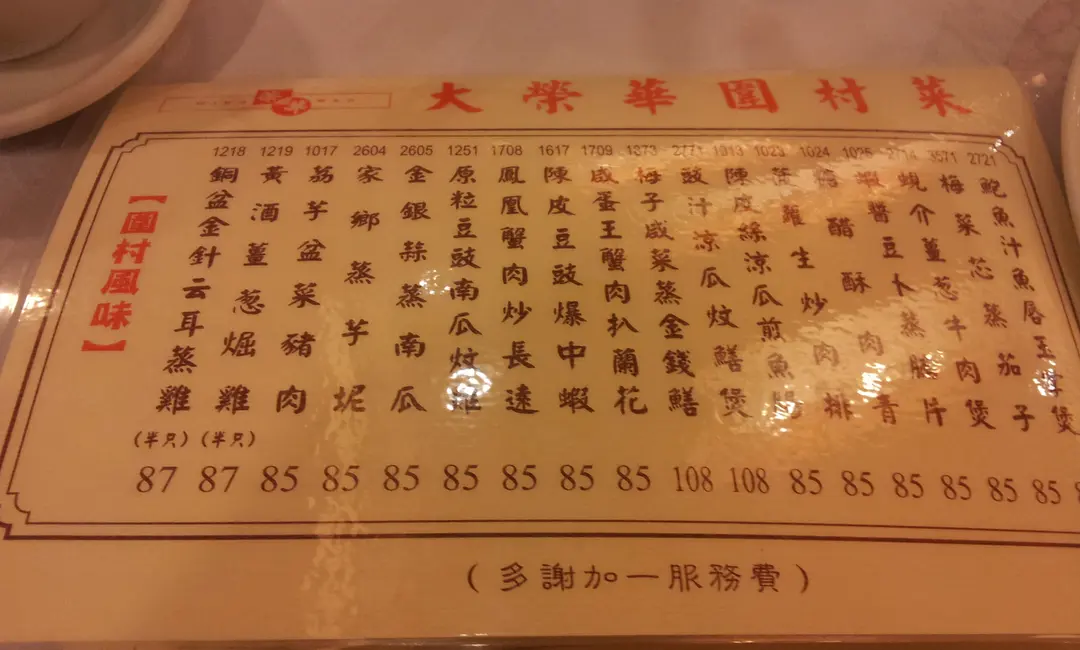 大榮華圍村菜
【圍村風味】
1218 1219 1017 2604 2605 1251 1708 1617 1709 1373 2771 1913 1023 1024 1025 2714 3571 2721
銅盆金針云耳蒸雞
黃酒薑葱焗雞
荔芋盆菜豬肉
家鄉蒸芋坭
金銀蒜蒸南瓜
原粒豆豉南瓜炆雞
鳳凰蟹肉炒長遠
陳皮豆豉爆中蝦
咸蛋王蟹肉扒蘭花
梅子咸菜蒸金錢鱔
豉汁凉瓜炆鱔煲
陳皮絲凉瓜煎魚
蘿生炒肉排
醋酥肉青
蝦醬豆卜蒸腩片
蜆介薑葱牛肉煲
梅菜芯蒸茄子
鮑魚汁魚唇玉掌煲
(半只) (半只)
87 87 85 85 85 85 85 85 85 108 108 85 85 85 85 85 85
(多謝加一服務費)